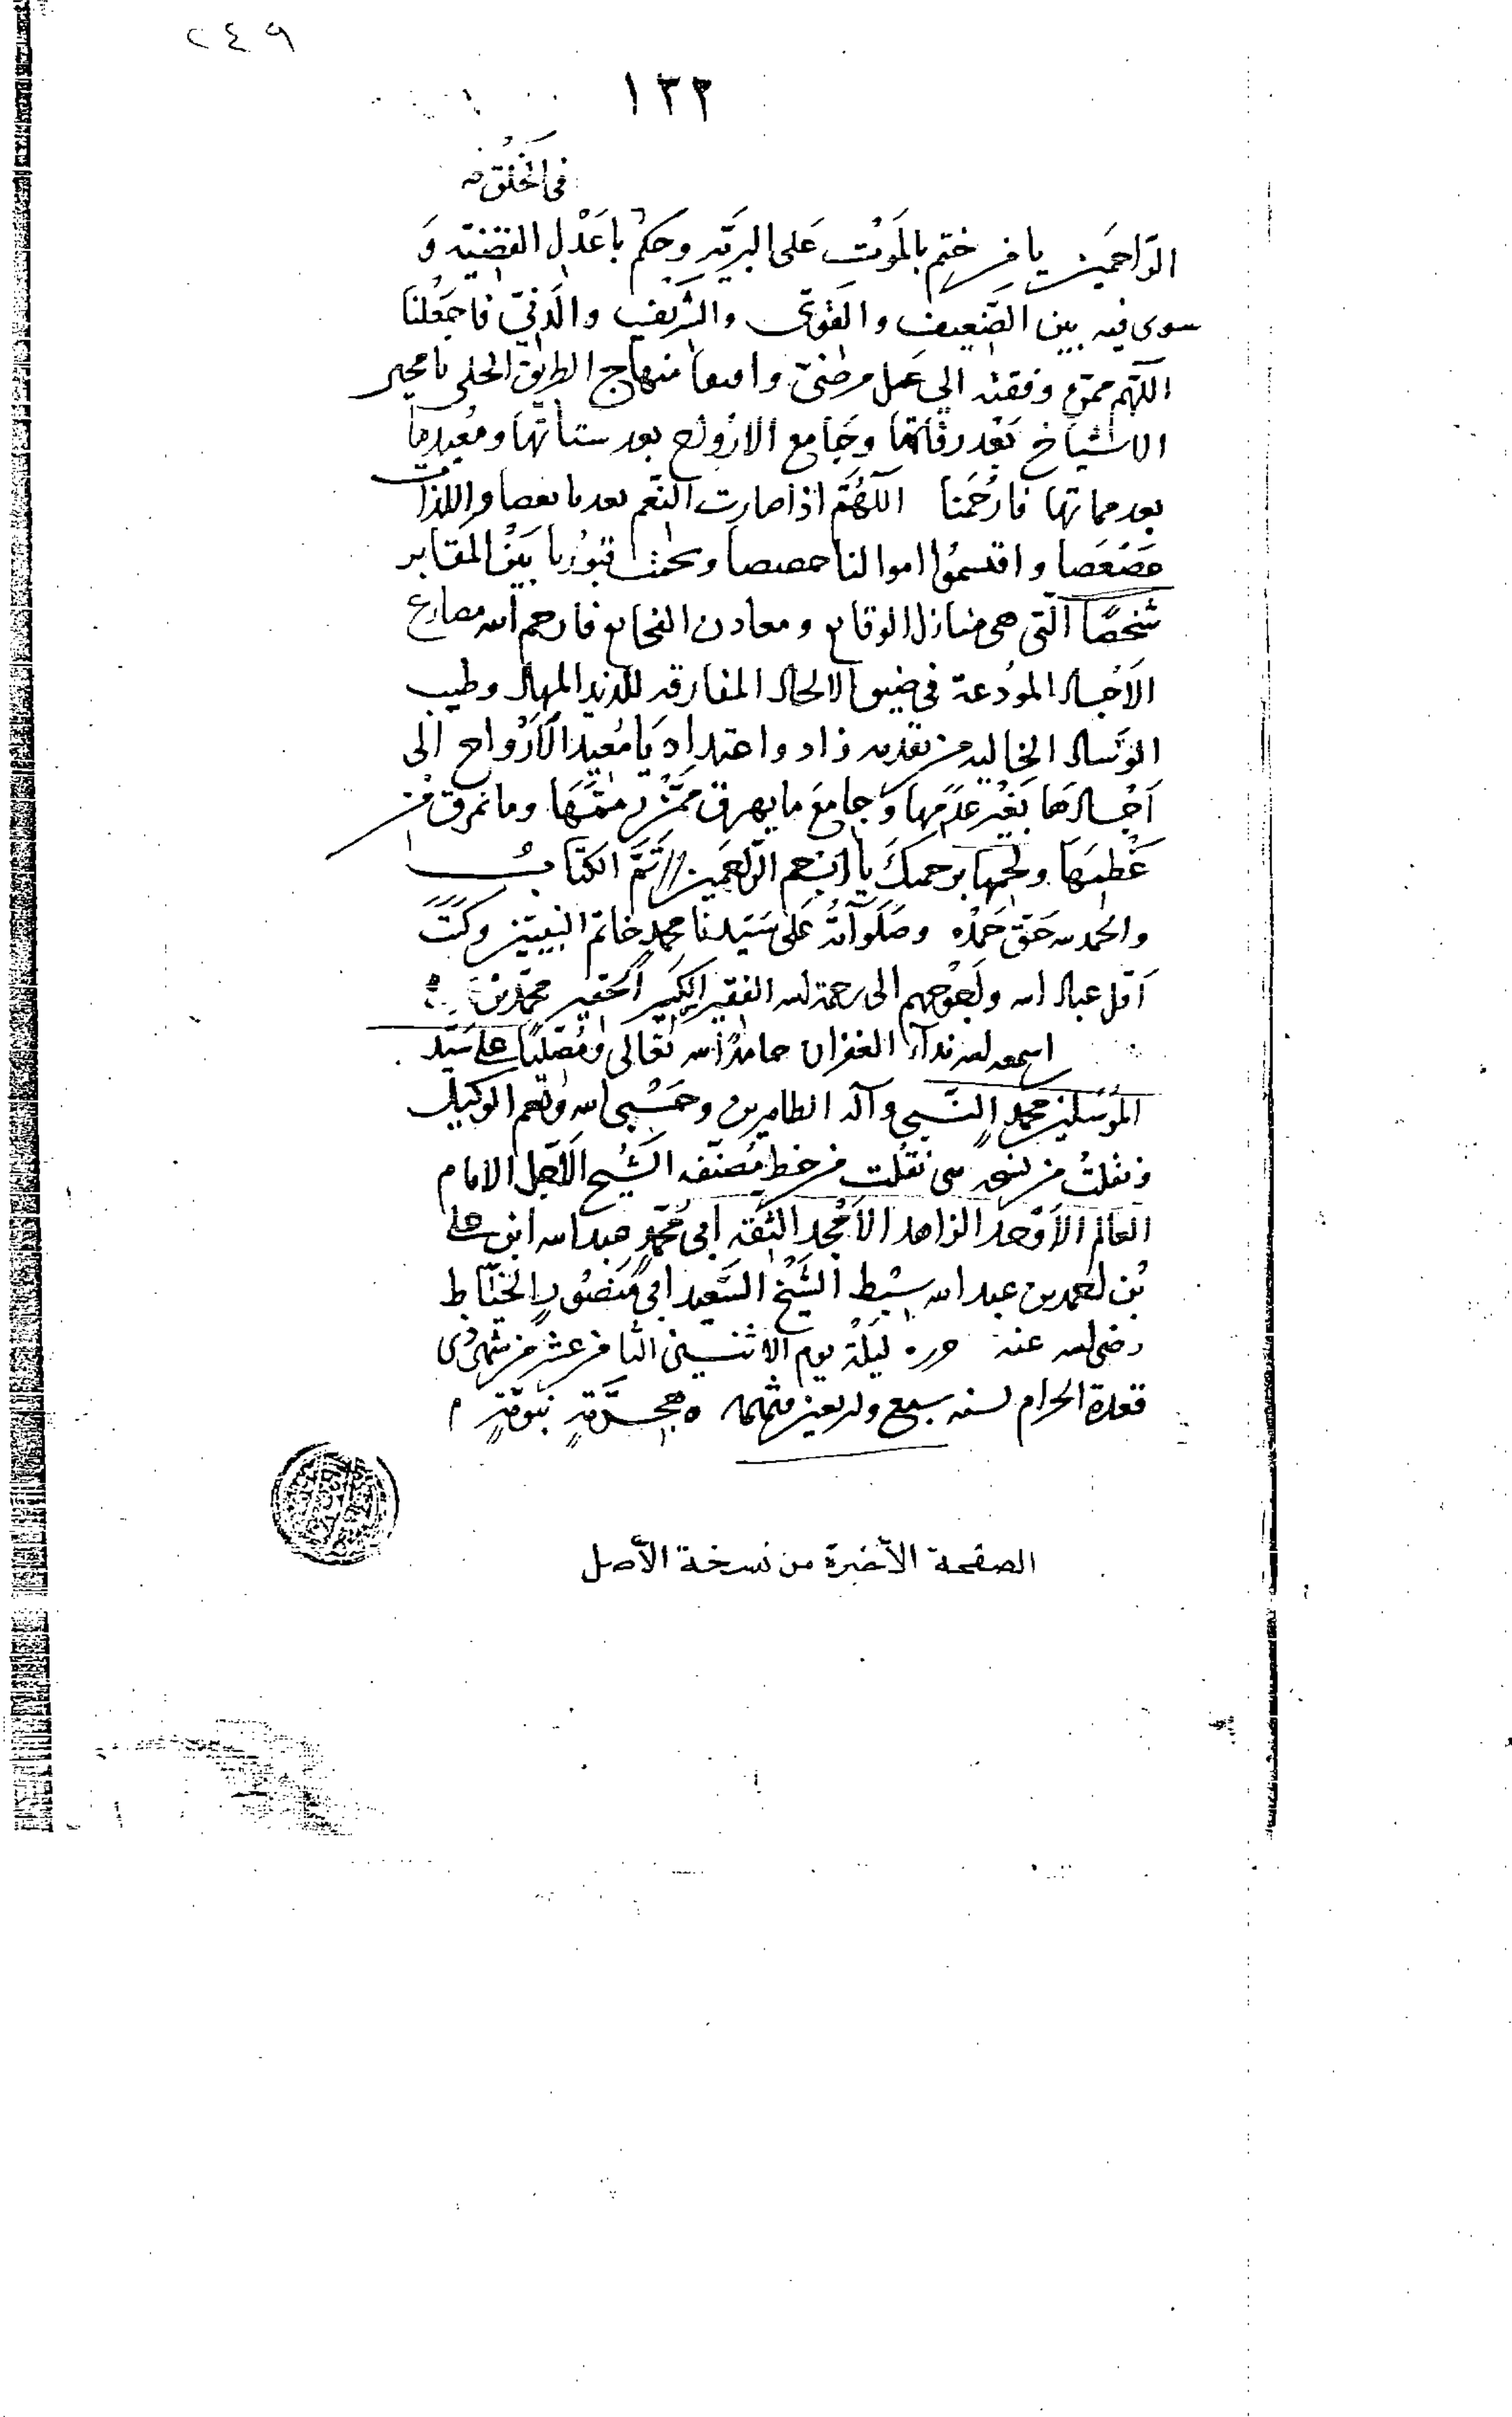 ٢٤٩
١٣٢
في الخلق
الرّاحمين يا من ختم بالموت على البريّة وحكم باعدل القضيّة و
سوى فيه بين الضّعيف والقوى والشّريف والدّنيّ فاجعلنا
اللّهم ممّن وفقته الى عمل مرضىّ منهاج الطريق يا محيى
الاشباح بعد وجامع الارواح بعد شتاتها ومعيدها
بعد مماتها فارحمنا اللّهمّ اذا صارت النّعم بعدنا واللذات
غصصا واقتسموا اموالنا حصصا قبورنا بين المقابر
شخصًا الّتى هى منازل الوقايع ومعادن الفجايع فارحم اللهم مصارع
الاجساد المودعة في ضيق الالحاد المفارقة للذيذ المهاد وطيب
الوساد الخالية من زاد واعتداد يا معيد الارواح الى
اجسادها بعد عدمها وجامع ما من وما تمزق من
عظمها ولحمها برحمتك يا ارحم الرّاحمين تمّ الكتاب
والحمد لله حق حمده وصلواته على سيّدنا محمد خاتم النبيّين وكتب
اقل عباد الله واحوجهم الى رحمة الله الفقير الحقير محمد بن
اسمعه الله نداء الغفران حامدًا لله تعالى ومصلّيًا على سيّد
المرسلين محمد النّبي وآله الطاهرين وحسبى الله ونعم الوكيل
ونقلت من نسخه هى نقلت من خط مصنّفه الشّيخ الاجل الامام
العالم الاوحد الزاهد الامجد الثقة ابى محمّد عبد الله ابن على
بن احمد بن عبد الله سبط الشّيخ السّعيد ابى منصور الخيّاط
رضى الله عنه حرره ليلة يوم الاثنين الثامن عشر من شهر ذى
قعدة الحرام لسنه سبع واربعين هجريّة نبويّة
الصفحة الأخيرة من نسخة الأصل